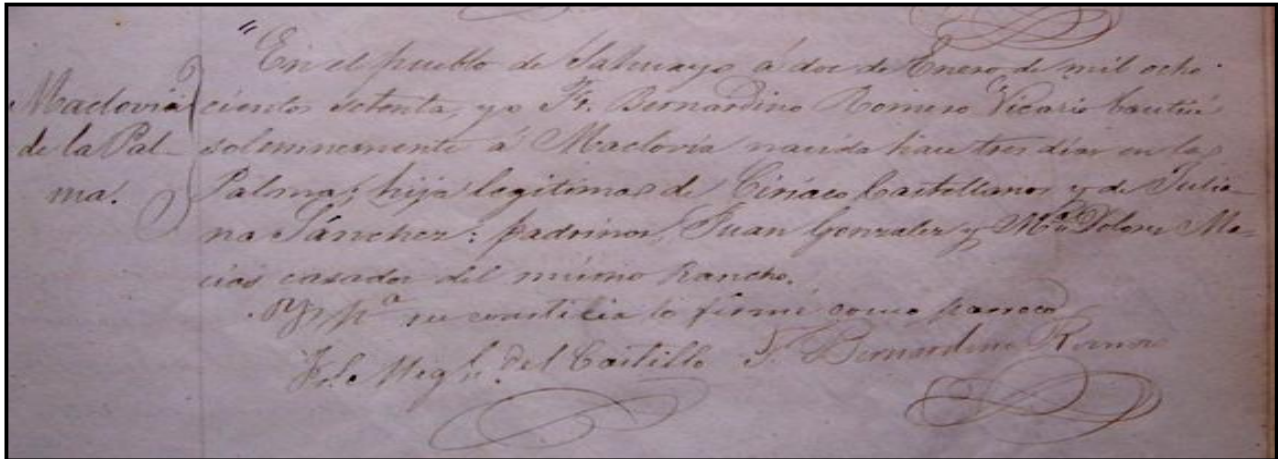 Maclovia
de la Pal-
ma.
"En el pueblo de Sahuayo á dos de Enero de mil ocho-
cientos setenta, yo Fr. Bernardino Romero Vicario bauticé
solemnemente á Maclovia nacida hace tres dias en la
Palma, hija legitima de Ciriaco Castellanos y de Julia-
na Sánchez: padrinos, Juan Gonzalez y Ma. Dolores Ma-
cias casados del mismo Rancho.
Y pa. su constancia lo firmé como parroco
del Castillo F. Bernardino Romero